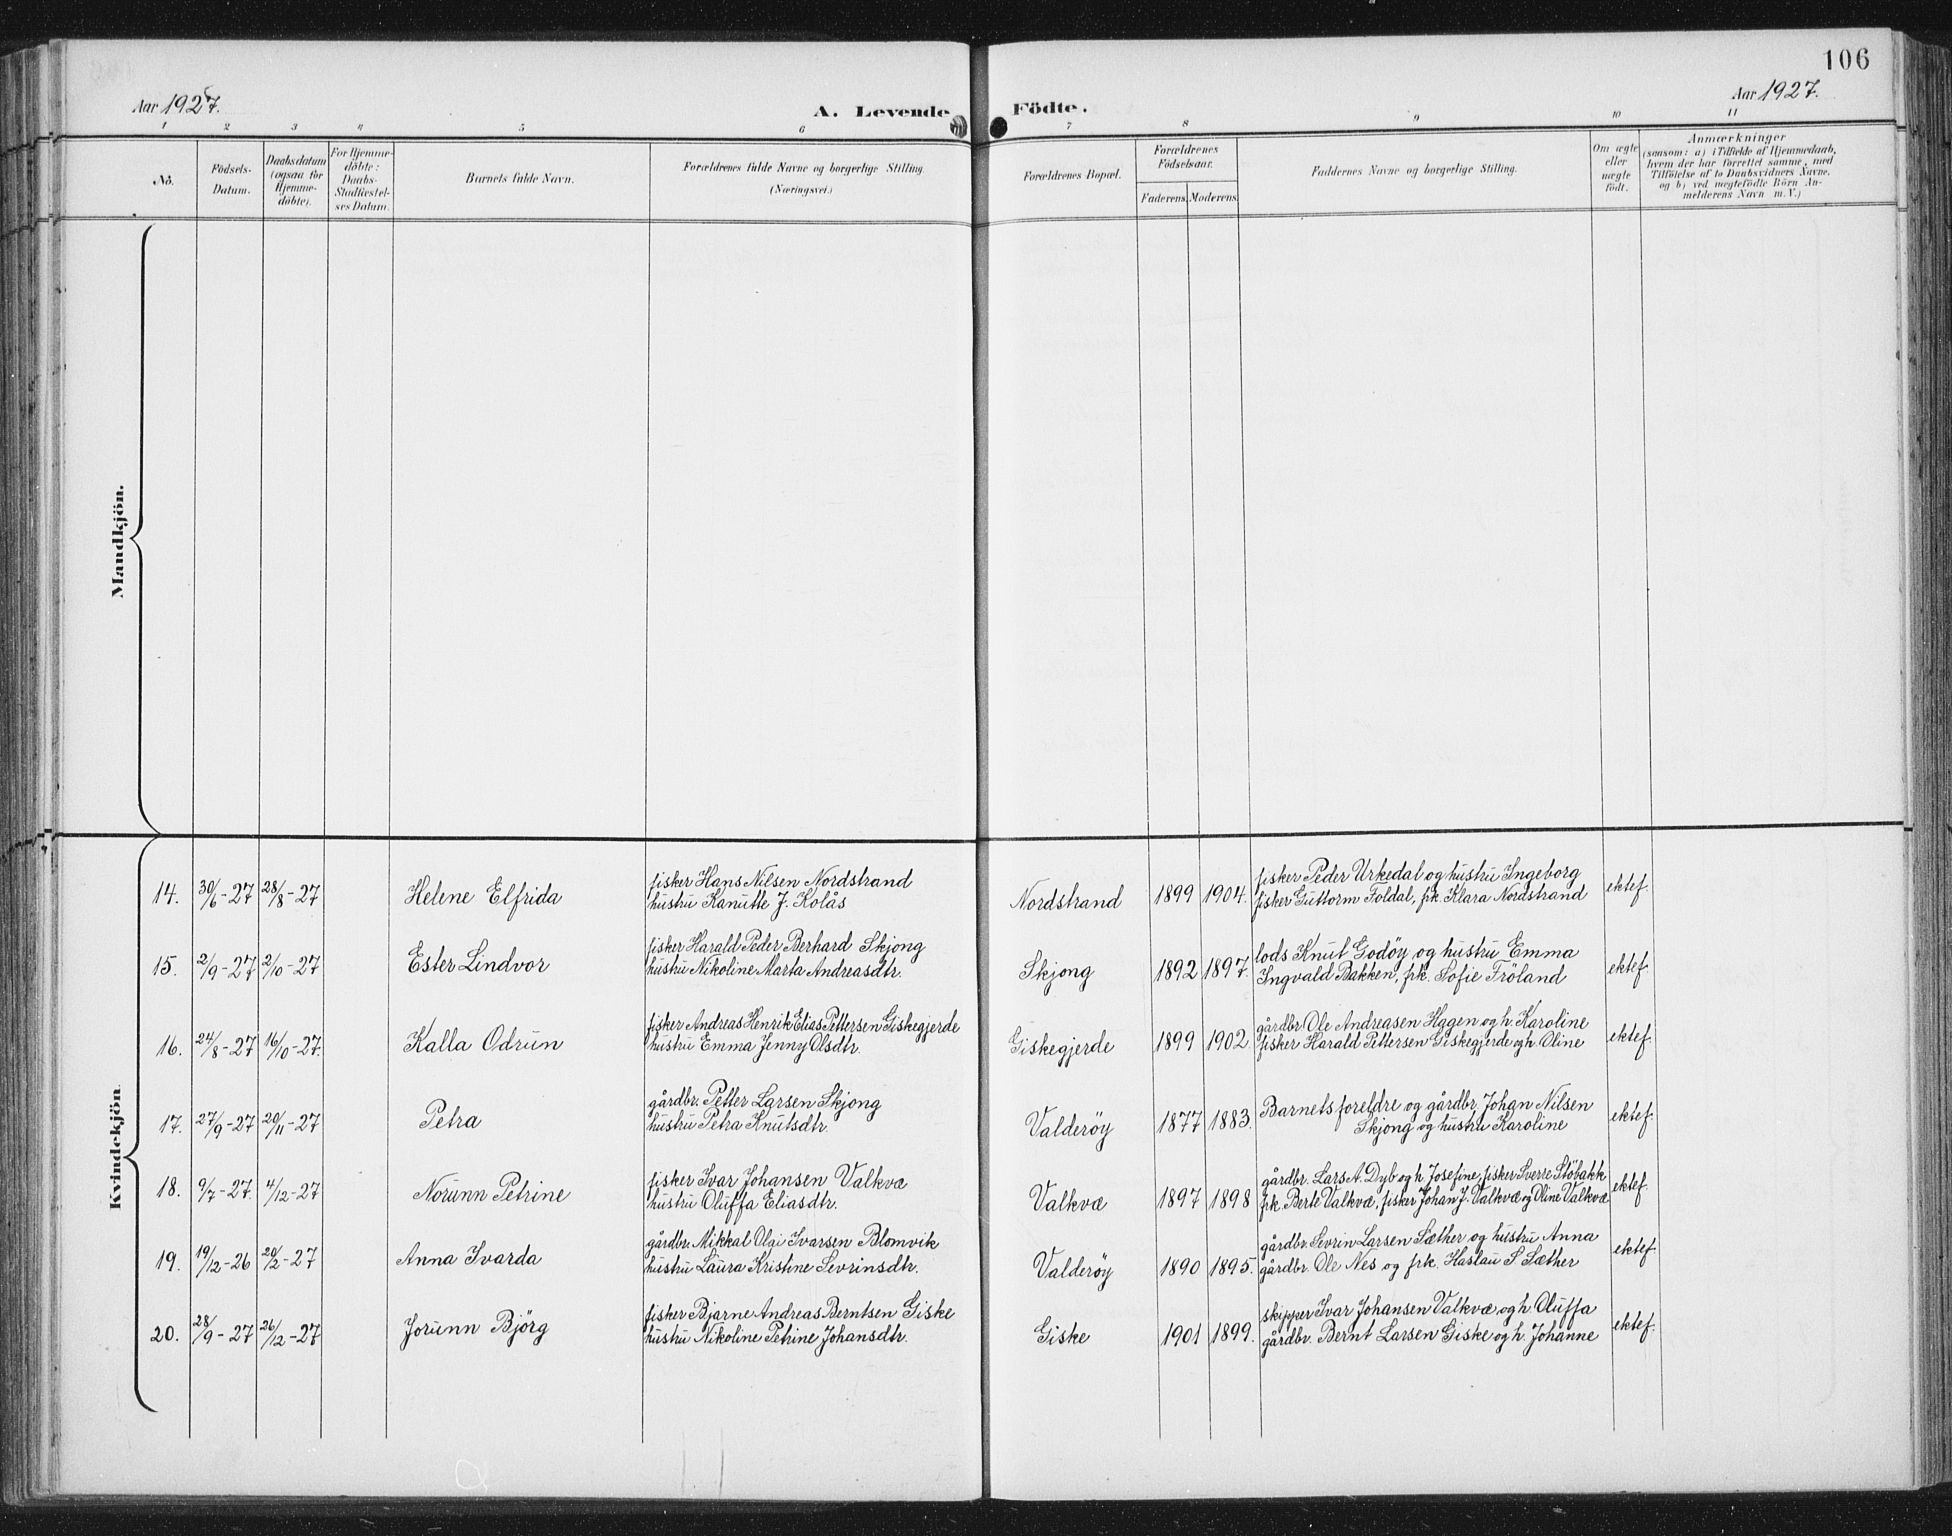 106
Aar 1927.
A. Levende Födte.
Aar 1927.
1 2 3 4 5 6 7 8 9 10 11
No.
Födsels-
Datum.
Daabsdatum
(ogsaa for
Hjemme-
döbte).
For Hjemme-
döbte:
Daabs-
Stadfæstel-
ses Datum.
Barnets fulde Navn.
Forældrenes fulde Navne og borgerlige Stilling
(Næringsvei.)
Forældrenes Bopæl.
Forældrenes
Födselsaar.
Faderens. Moderens.
Faddernes Navne og borgerlige Stilling.
Om ægte
eller
uægte
födt.
Anmærkninger
(saasom: a) i Tilfælde af Hjemmedaab,
hvem der har forrettet samme, med
Tilföielse af to Daabsvidners Navne,
og b) ved uægtefödte Börn An-
melderens Navn m. V.)
Mandkjön.
Kvindekjön.
14. 30/6-27 28/8-27 Helene Elfrida
fisker Hans Nilsen Nordstrand
hustru Kanutte J. Kolås
Nordstrand 1899 1904.
fisker Peder Urkedal og hustru Ingeborg
fisker Guttorm Foldal, frk. Klara Nordstrand
ektef.
15. 2/9-27 2/10-27 Ester Lindvor
fisker Harald Peder Berhard Skjong
hustru Nikoline Marta Andreasdtr.
Skjong 1892 1897.
lods Knut Godöy og hustru Emma
Ingvald Bakken, frk. Sofie Fröland
ektef.
16. 24/8-27 16/10-27. Kalla Odrun
fisker Andreas Henrik Elias Pettersen Giskegjerde
hustru Emma Jenny Olsdtr.
Giskegjerde 1899 1902.
gårdbr. Ole Andreasen Hagen og h. Karoline
fisker Harald Pettersen Giskegjerde og h. Oline
ektef.
17. 27/9-27 20/11-27 Petra
gårdbr. Petter Larsen Skjong
hustru Petra Knutsdtr.
Valderöy 1877 1883.
Barnets foreldre og gårdbr. Johan Nilsen
Skjong og hustru Karoline
ektef.
18. 9/7-27. 4/12-27 Norunn Petrine
fisker Ivar Johansen Valkvæ
hustru Oluffa Eliasdtr.
Valkvæ 1897 1898
gårdbr. Lars A. Dyb og h. Josefine, fisker Sverre Stöbakk
frk. Berte Valkvæ, fisker Johan J. Valkvæ og Oline Valkvæ
ektef.
19. 19/12-26 20/2-27 Anna Ivarda
gårdbr. Mikkal Olai Ivarsen Blomvik
hustru Laura Kristine Sevrinsdtr.
Valderöy 1890 1895.
gårdbr. Sevrin Larsen Sæther og hustru Anna
gårdbr. Ole Nes og frk. Haslau S. Sæther
ektef.
20. 28/9-27 26/12-27 Jorunn Björg
fisker Bjarne Andreas Berntsen Giske
hustru Nikoline Petrine Johansdtr.
Giske 1901 1899.
skipper Ivar Johansen Valkvæ og h. Oluffa
gårdbr. Bernt Larsen Giske og h. Johanne
ektef.